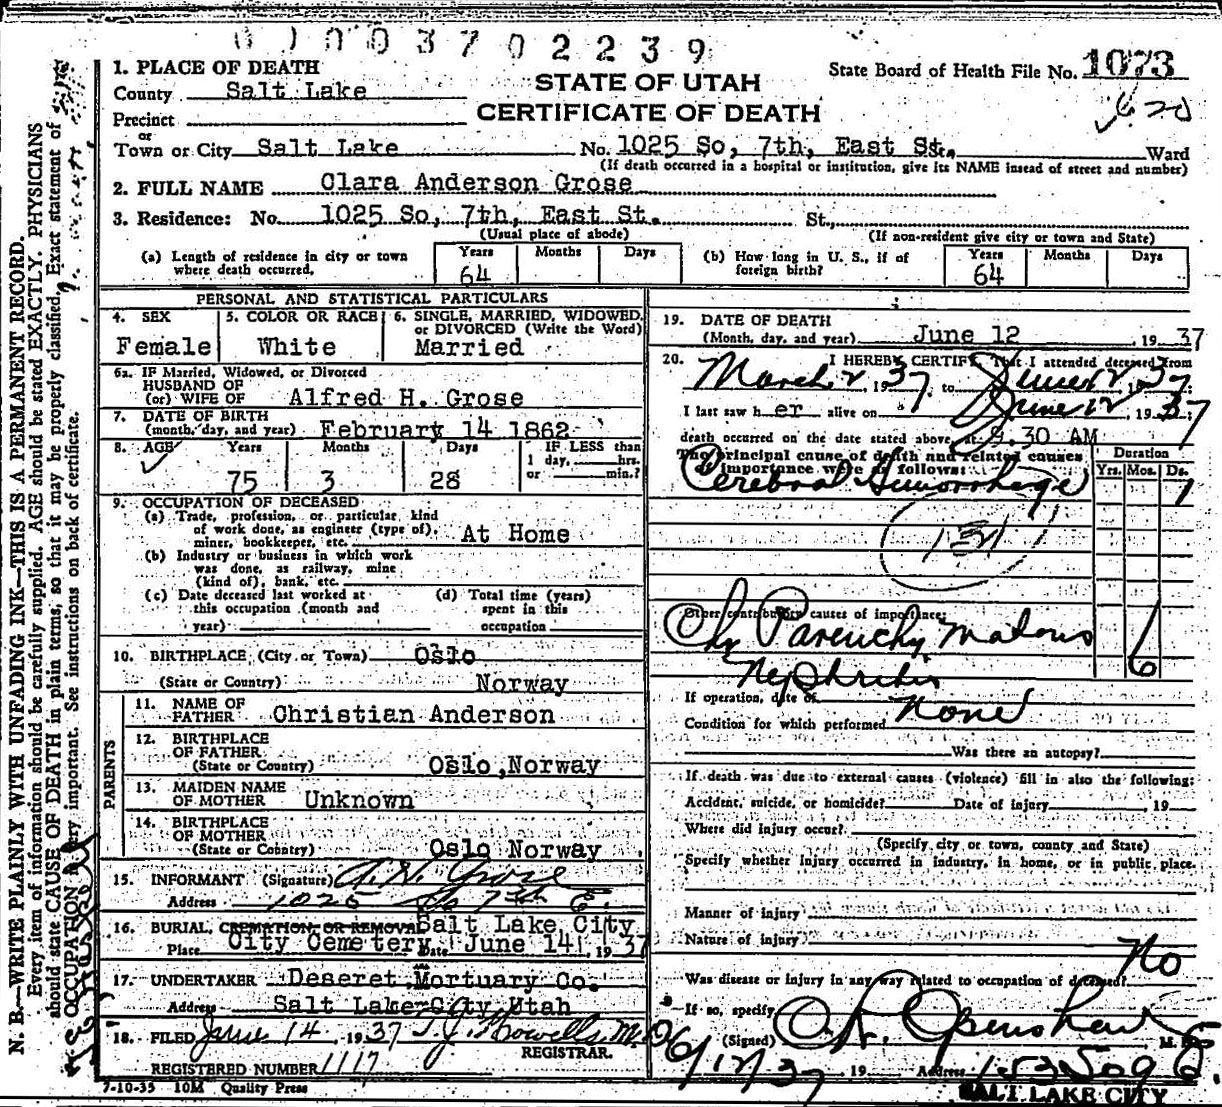 0 1 0 0 3 7 0 2 2 3 9
State Board of Health File No. 1073
620
STATE OF UTAH
CERTIFICATE OF DEATH
1. PLACE OF DEATH
County Salt Lake
Precinct
or
Town or City Salt Lake No. 1025 So, 7th, East St. Ward
(If death occurred in a hospital or institution, give its NAME instead of street and number)
2. FULL NAME Clara Anderson Grose
3. Residence: No. 1025 So, 7th, East St. St.,
(Usual place of abode) (If non-resident give city or town and State)
(a) Length of residence in city or town where death occurred. Years 64 Months Days
(b) How long in U. S., if of foreign birth? Years 64 Months Days
PERSONAL AND STATISTICAL PARTICULARS
4. SEX Female
5. COLOR OR RACE White
6. SINGLE, MARRIED, WIDOWED, or DIVORCED (Write the Word) Married
6a. IF Married, Widowed, or Divorced
HUSBAND OF
(or) WIFE OF Alfred H. Grose
7. DATE OF BIRTH
(month, day, and year) February 14 1862
8. AGE Years 75 Months 3 Days 28 IF LESS than 1 day, hrs. or min.?
9. OCCUPATION OF DECEASED
(a) Trade, profession, or particular kind
of work done, as engineer (type of),
miner, bookkeeper, etc. At Home
(b) Industry or business in which work
was done, as railway, mine
(kind of), bank, etc.
(c) Date deceased last worked at
this occupation (month and
year)
(d) Total time (years)
spent in this
occupation
10. BIRTHPLACE (City or Town) Oslo
(State or Country) Norway
PARENTS
11. NAME OF
FATHER Christian Anderson
12. BIRTHPLACE
OF FATHER
(State or Country) Oslo, Norway
13. MAIDEN NAME
OF MOTHER Unknown
14. BIRTHPLACE
OF MOTHER
(State or Country) Oslo Norway
15. INFORMANT (Signature) A. H. Grose
Address 1025 So 7th E.
16. BURIAL, CREMATION, OR REMOVAL Salt Lake City
Place City Cemetery Date June 14, 1937
17. UNDERTAKER Deseret Mortuary Co.
Address Salt Lake City Utah
18. FILED June 14, 1937 T. J. Howells M.D.
REGISTRAR.
REGISTERED NUMBER 1117
7-10-35 10M Quality Press
19. DATE OF DEATH
(Month, day, and year) June 12, 1937
20. I HEREBY CERTIFY That I attended deceased from
March 2, 1937 to June 12 1937
I last saw her alive on June 12, 1937
death occurred on the date stated above, at 9.30 AM
The principal cause of death and related causes
of importance were as follows: Duration
Yrs. Mos. Ds.
Cerebral Hemorrhage 1
131
Other contributory causes of importance:
Chr Parenchymatous 6
Nephritis
If operation, date of None
Condition for which performed
Was there an autopsy?
If death was due to external causes (violence) fill in also the following:
Accident, suicide, or homicide? Date of injury 19
Where did injury occur?
(Specify city or town, county and State)
Specify whether injury occurred in industry, in home, or in public place.
Manner of injury
Nature of injury
Was disease or injury in any way related to occupation of deceased? No
If so, specify
(Signed) O. A. Openshaw M. D.
6/12/37 19 Address 1535 So 9 E
SALT LAKE CITY
N. B.—WRITE PLAINLY WITH UNFADING INK—THIS IS A PERMANENT RECORD.
Every item of information should be carefully supplied. AGE should be stated EXACTLY. PHYSICIANS
should state CAUSE OF DEATH in plain terms, so that it may be properly classified. Exact statement of
OCCUPATION is very important. See instructions on back of certificate.